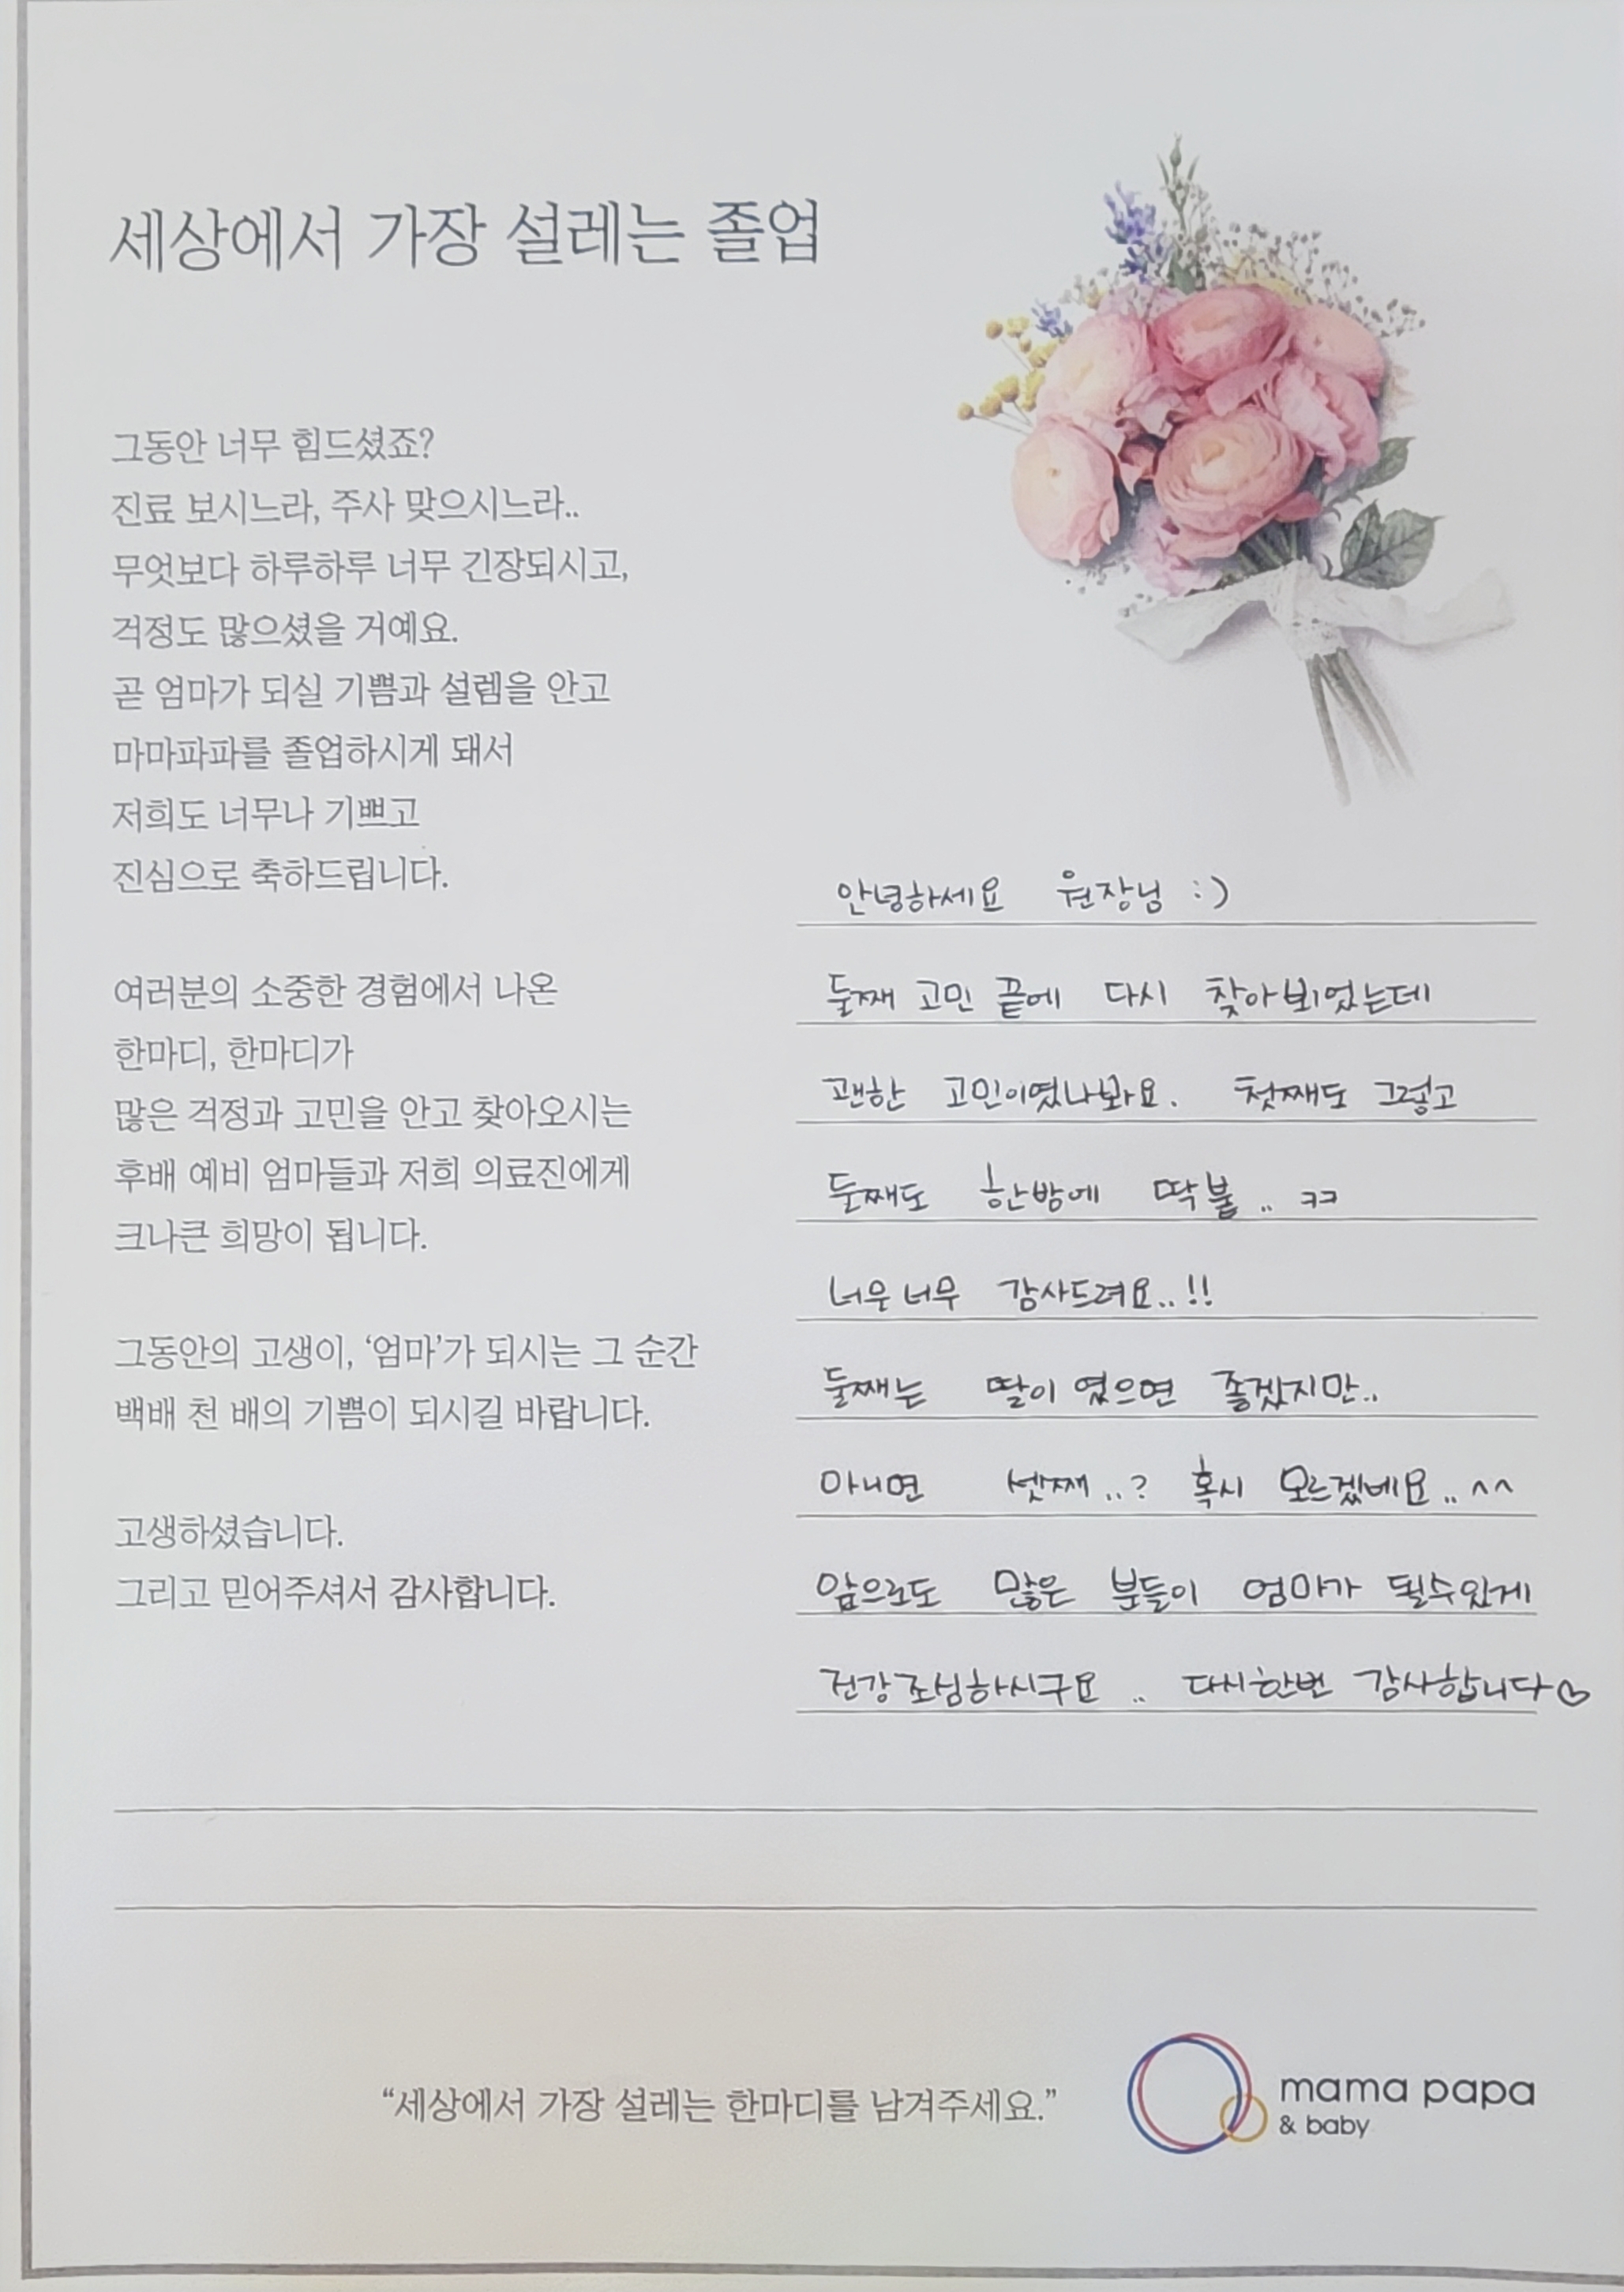 세상에서 가장 설레는 졸업
그동안 너무 힘드셨죠?
진료 보시느라, 주사 맞으시느라..
무엇보다 하루하루 너무 긴장되시고,
걱정도 많으셨을 거예요.
곧 엄마가 되실 기쁨과 설렘을 안고
마마파파를 졸업하시게 돼서
저희도 너무나 기쁘고
진심으로 축하드립니다.
여러분의 소중한 경험에서 나온
한마디, 한마디가
많은 걱정과 고민을 안고 찾아오시는
후배 예비 엄마들과 저희 의료진에게
크나큰 희망이 됩니다.
그동안의 고생이, ‘엄마’가 되시는 그 순간
백배 천 배의 기쁨이 되시길 바랍니다.
고생하셨습니다.
그리고 믿어주셔서 감사합니다.
안녕하세요 원장님 :)
둘째 고민 끝에 다시 찾아뵈었는데
괜한 고민이였나봐요. 첫째도 그렇고
둘째도 한방에 딱붙.. ㅋㅋ
너무너무 감사드려요..!!
둘째는 딸이 였으면 좋겠지만..
아니면 셋째..? 혹시 모르겠네요..^^
앞으로도 많은 분들이 엄마가 될수있게
건강조심하시구요.. 다시한번 감사합니다♡
“세상에서 가장 설레는 한마디를 남겨주세요.”
mama papa
& baby